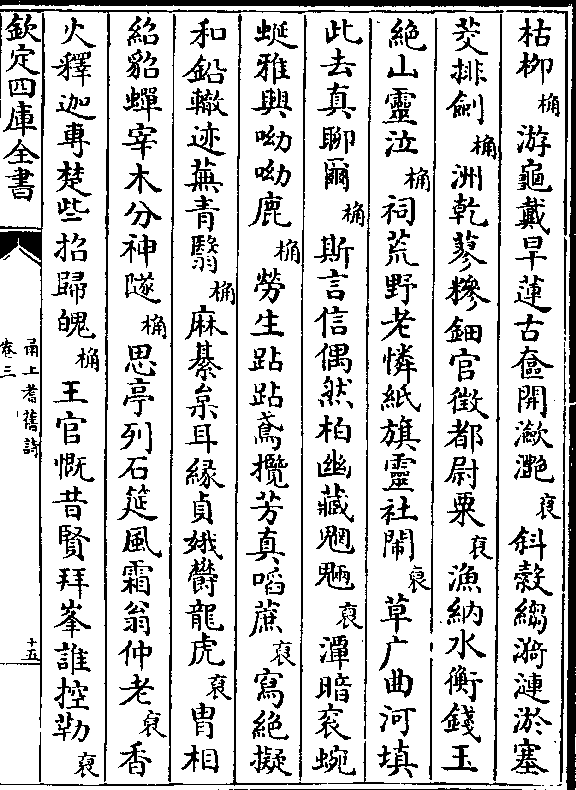 枯柳桷游龜戴早蓮古奩開瀲灔袞斜縠縐漪漣淤塞
茭排劍桷洲乾蓼糝鈿官徵都尉粟袞漁納水衡錢玉
絶山靈泣桷祠荒野老憐紙旗靈社鬧袞草广曲河填
此去真聊爾桷斯言信偶然柏幽藏魍魎袞潭暗衮蜿
蜒雅興呦呦鹿桷勞生跕跕鳶攬芳真啗蔗袞寫絶擬
和鉛轍迹蕪青翳桷麻綦枲耳緣貞娥欝龍虎袞胄相
紹貂蟬宰木分神隧桷思亭列石筵風霜翁仲老袞香
火釋迦專楚些招歸魄桷王官慨昔賢拜峯誰控勒袞
欽定四庫全書
甬上耆舊詩
卷三
十五